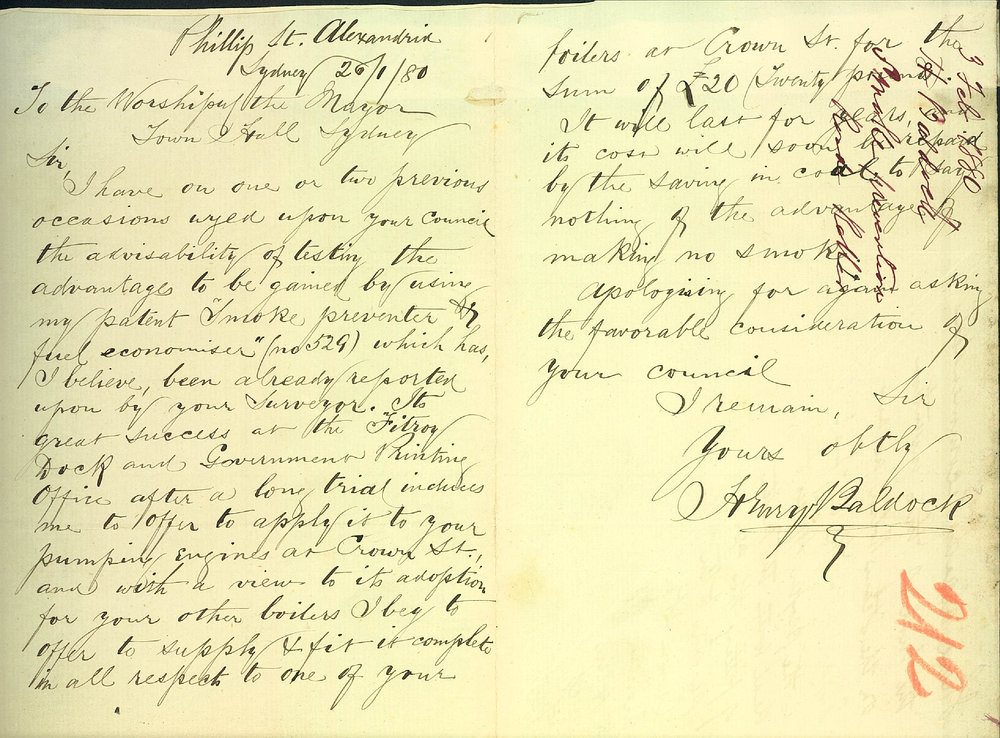 Phillip St. Alexandria
Sydney 26/1/80
To the Worshipful the Mayor
Town Hall Sydney
Sir,
I have on one or two previous
occasions urged upon your Council
the advisability of testing the
advantages to be gained by using
my patent "Smoke preventer &
fuel economiser" (no 529) which has,
I believe, been already reported
upon by your Surveyor. Its
great success at the "Fitzroy
Dock and Government Printing
Office after a long trial induces
me to offer to apply it to your
pumping engines at Crown St.,
and with a view to its adoption
for your other boilers I beg to
offer to supply & fit it complete
in all respects to one of your
boilers at Crown St. for the
sum of £20 (Twenty pounds)
It will last for years, and
its cost will soon be repaid
by the saving in coal to say
nothing of the advantage of
making no smoke
Apologising for again asking
the favorable consideration of
your council
I remain, Sir
Yours obtly
Henry Baldock
3 Feb 1880
H Baldock
Smoke prevention
212